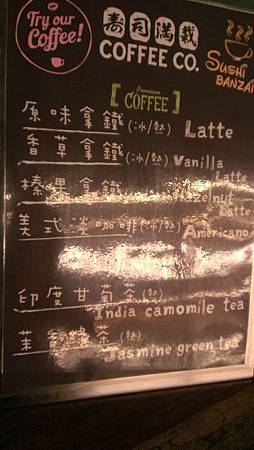 Try our
Coffee!
壽司滿載
COFFEE CO.
SUSHI
BANZAI
Premium
COFFEE
原味拿鐵(冰/熱) Latte
香草拿鐵(冰/熱) Vanilla
Latte
榛果拿鐵 Hazelnut
Latte
美式咖啡(冰/熱) Americano
印度甘菊茶(熱)
India camomile tea
茉 茶(熱)
Jasmine green tea